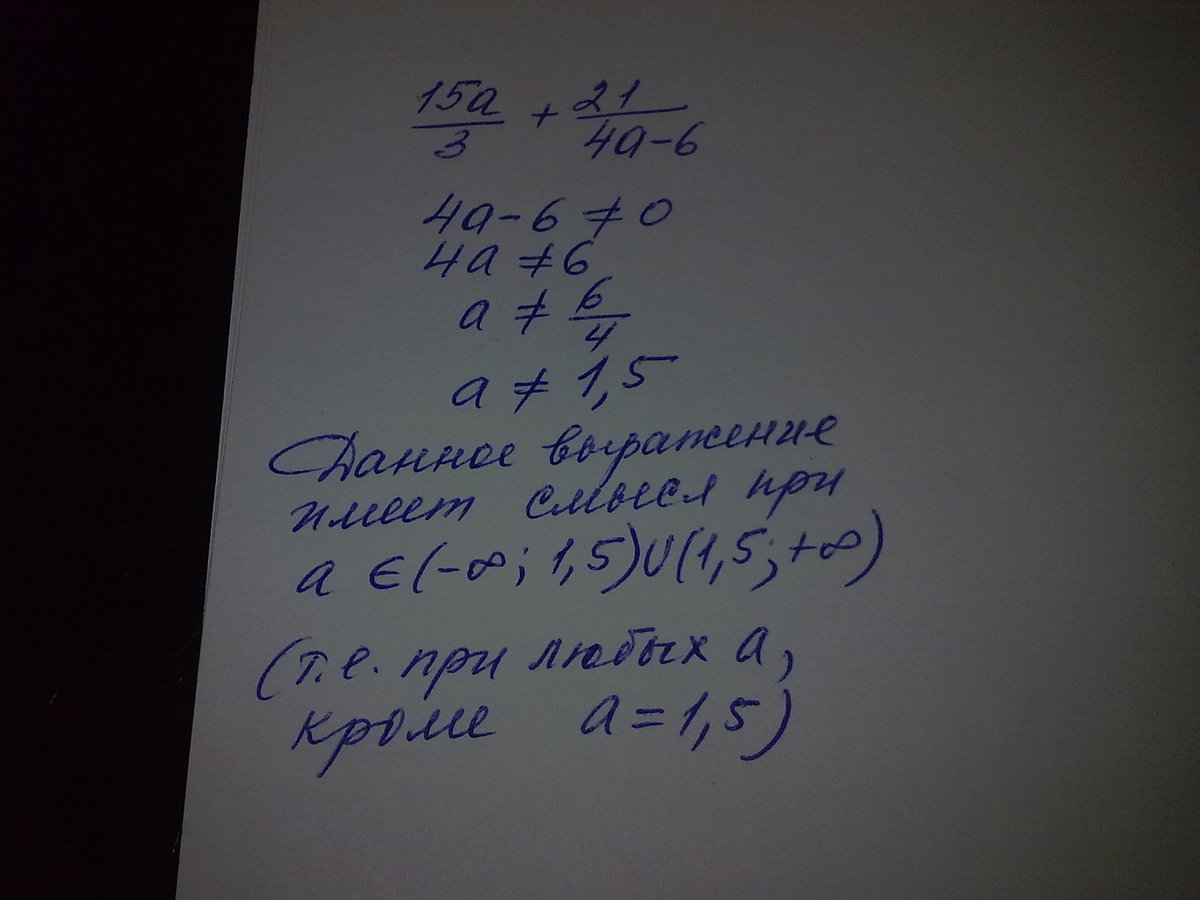 15a/3 + 21/4a-6
4a-6≠0
4a≠6
a≠6/4
a≠1,5
Данное выражение
имеет смысл при
a ∈(-∞; 1,5)∪(1,5;+∞)
(т.е. при любых a,
кроме a=1,5)